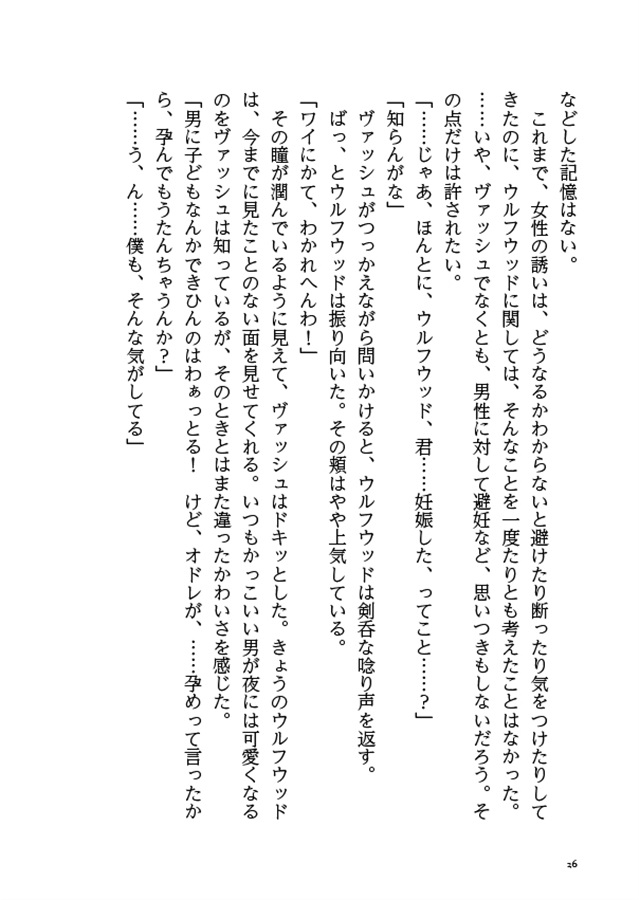 などした記憶はない。
　これまで、女性の誘いは、どうなるかわからないと避けたり断ったり気をつけたりして
きたのに、ウルフウッドに関しては、そんなことを一度たりとも考えたことはなかった。
……いや、ヴァッシュでなくとも、男性に対して避妊など、思いつきもしないだろう。そ
の点だけは許されたい。
「……じゃあ、ほんとに、ウルフウッド、君……妊娠した、ってこと……？」
「知らんがな」
　ヴァッシュがつっかえながら問いかけると、ウルフウッドは剣呑な唸り声を返す。
　ばっ、とウルフウッドは振り向いた。その頬はやや上気している。
「ワイにかて、わかれへんわ！」
　その瞳が潤んでいるように見えて、ヴァッシュはドキッとした。きょうのウルフウッド
は、今までに見たことのない面を見せてくれる。いつもかっこいい男が夜には可愛くなる
のをヴァッシュは知っているが、そのときとはまた違ったかわいさを感じた。
「男に子どもなんかできひんのはわぁっとる！　けど、オドレが、……孕めって言ったか
ら、孕んでもうたんちゃうんか？」
「……う、ん……僕も、そんな気がしてる」
26